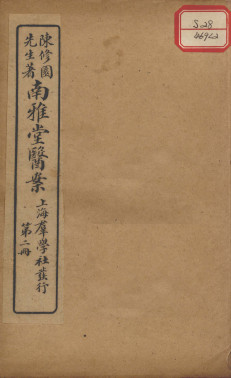 陳修園
先生著
南雅堂醫案
上海羣學社發行
第二冊